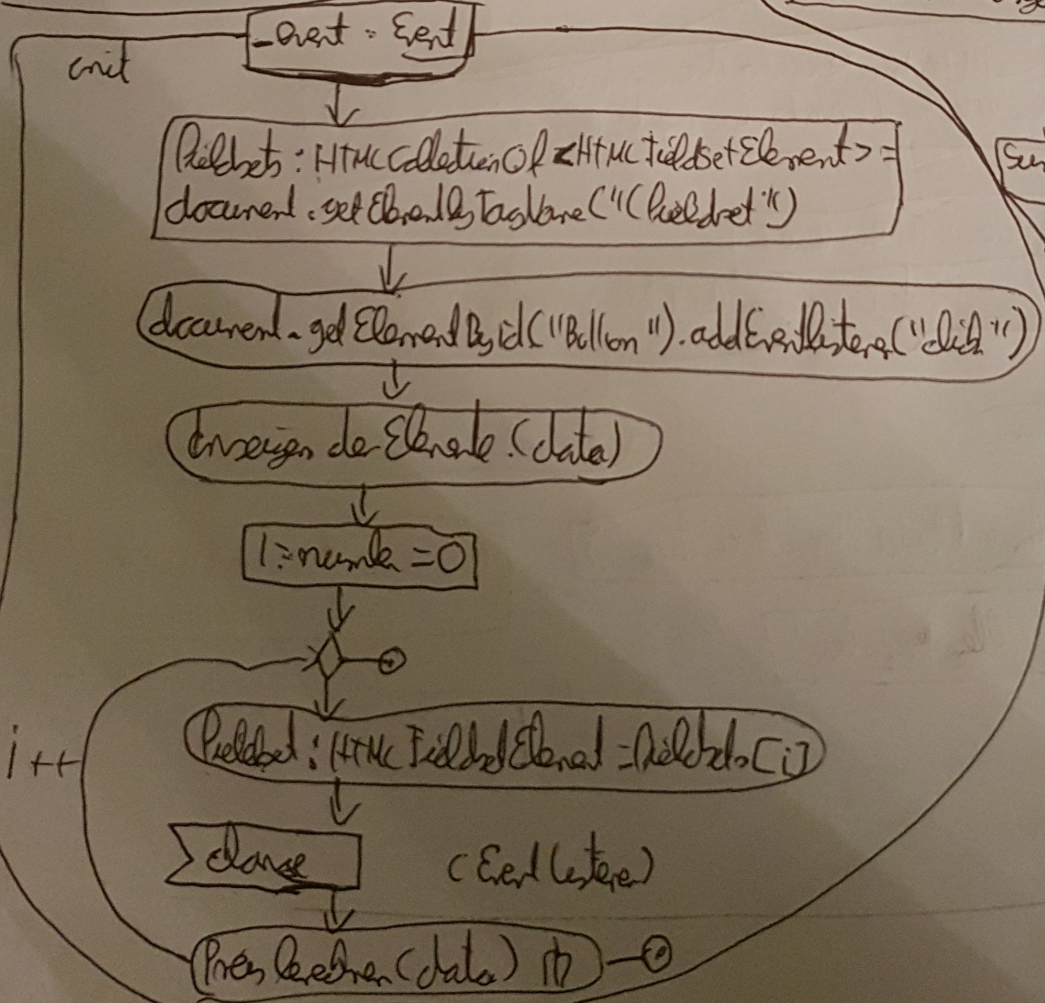 _event : Event
init
fieldsets : HTMLCollectionOf <HTMLFieldsetElement> =
document.getElementsByTagName("fieldset")
document.getElementById("Button").addEventlistener("click")
Anzeigen der Elemente (data)
i : number = 0
i++
fieldset : HTMLFieldsetElement = fieldsets[i]
change
(Eventlistener)
Preis berechnen (data)